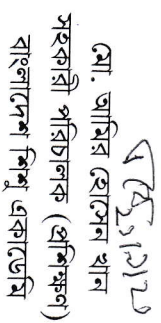 মো. আমির হোসেন খান
সহকারী পরিচালক (প্রশিক্ষণ)
বাংলাদেশ শিশু একাডেমি